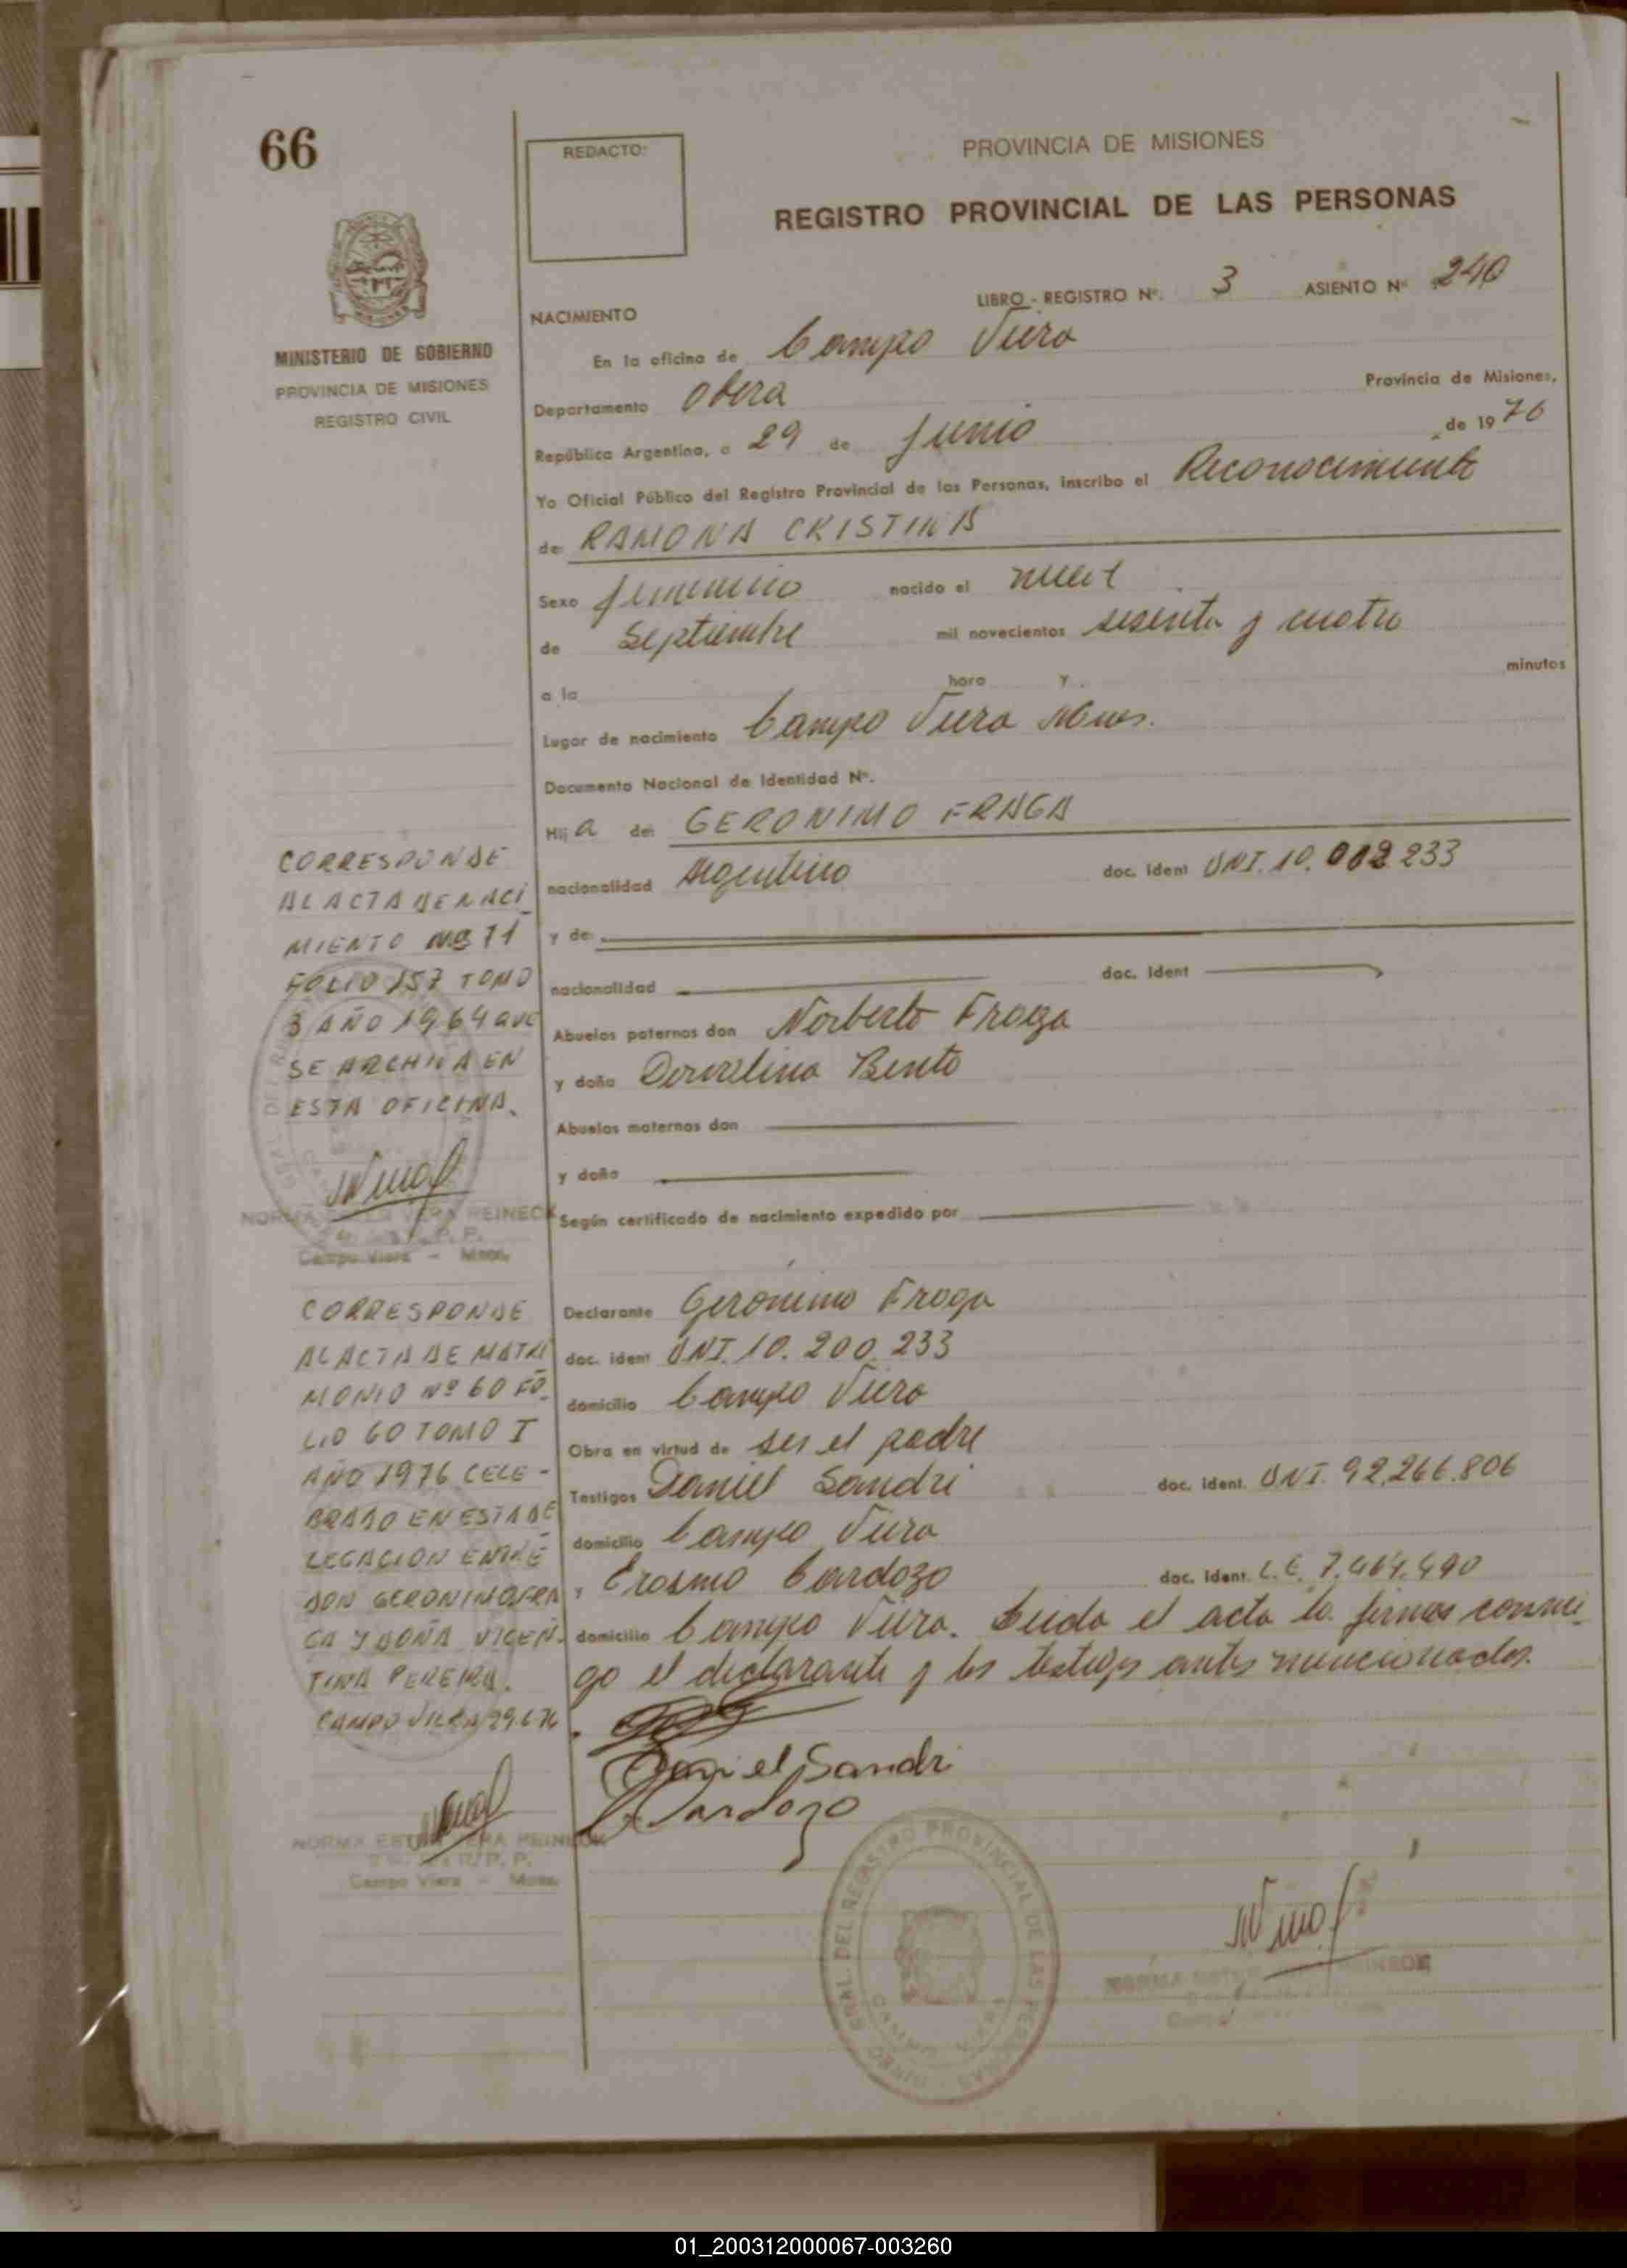 66
REDACTO:
PROVINCIA DE MISIONES
REGISTRO PROVINCIAL DE LAS PERSONAS
MINISTERIO DE GOBIERNO
PROVINCIA DE MISIONES
REGISTRO CIVIL
LIBRO - REGISTRO Nº. 3 ASIENTO Nº 240
NACIMIENTO
En la oficina de Campo Viera
Departamento Obera Provincia de Misiones,
República Argentina, a 29 de Junio de 1976
Yo Oficial Público del Registro Provincial de las Personas, inscribo el Reconocimiento
de: RAMONA CRISTINA
Sexo femenino nacido el nueve
de Septiembre mil novecientos sesenta y cuatro
a la hora y minutos
Lugar de nacimiento Campo Viera Mnes.
Documento Nacional de Identidad Nº.
Hija de: GERONIMO FRAGA
nacionalidad Argentino doc. ident DNI. 10. 233
y de:
nacionalidad doc. ident
Abuelos paternos don Norberto Fraga
y doña Dorvelina Bento
Abuelos maternos don
y doña
Según certificado de nacimiento expedido por
Declarante Geronimo Fraga
doc. ident DNI. 10. 200. 233
domicilio Campo Viera
Obra en virtud de ser el padre
Testigos Daniel Sandri doc. ident. DNI. 92.266.806
domicilio Campo Viera
y Erasmo Cardozo doc. ident. L.E. 7.464.490
domicilio Campo Viera. Leida el acta la firman conmi
go el declarante y los testigos antes mencionados.
Daniel Sandri
Cardozo
CORRESPONDE
AL ACTA DE NACI
MIENTO Nº 71
FOLIO 157 TOMO
3 AÑO 1964 QUE
SE ARCHIVA EN
ESTA OFICINA.
NORMA VERA REINECK
Campo Viera - Mnes.
CORRESPONDE
AL ACTA DE MATRI
MONIO Nº 60 FO_
LIO 60 TOMO I
AÑO 1976 CELE -
BRADO EN ESTA DE
LEGACION ENTRE
DON GERONIMO FRA
GA Y DOÑA VICEN_
TINA PEREIRA.
CAMPO VIERA 29.6.76
NORMA ESTER VERA REINECK
R. P. P.
Campo Viera - Mnes.
DIREC. GRAL. DEL REGISTRO PROVINCIAL DE LAS PERSONAS
CAMPO VIERA
NORMA ESTER REINECK
01_200312000067-003260